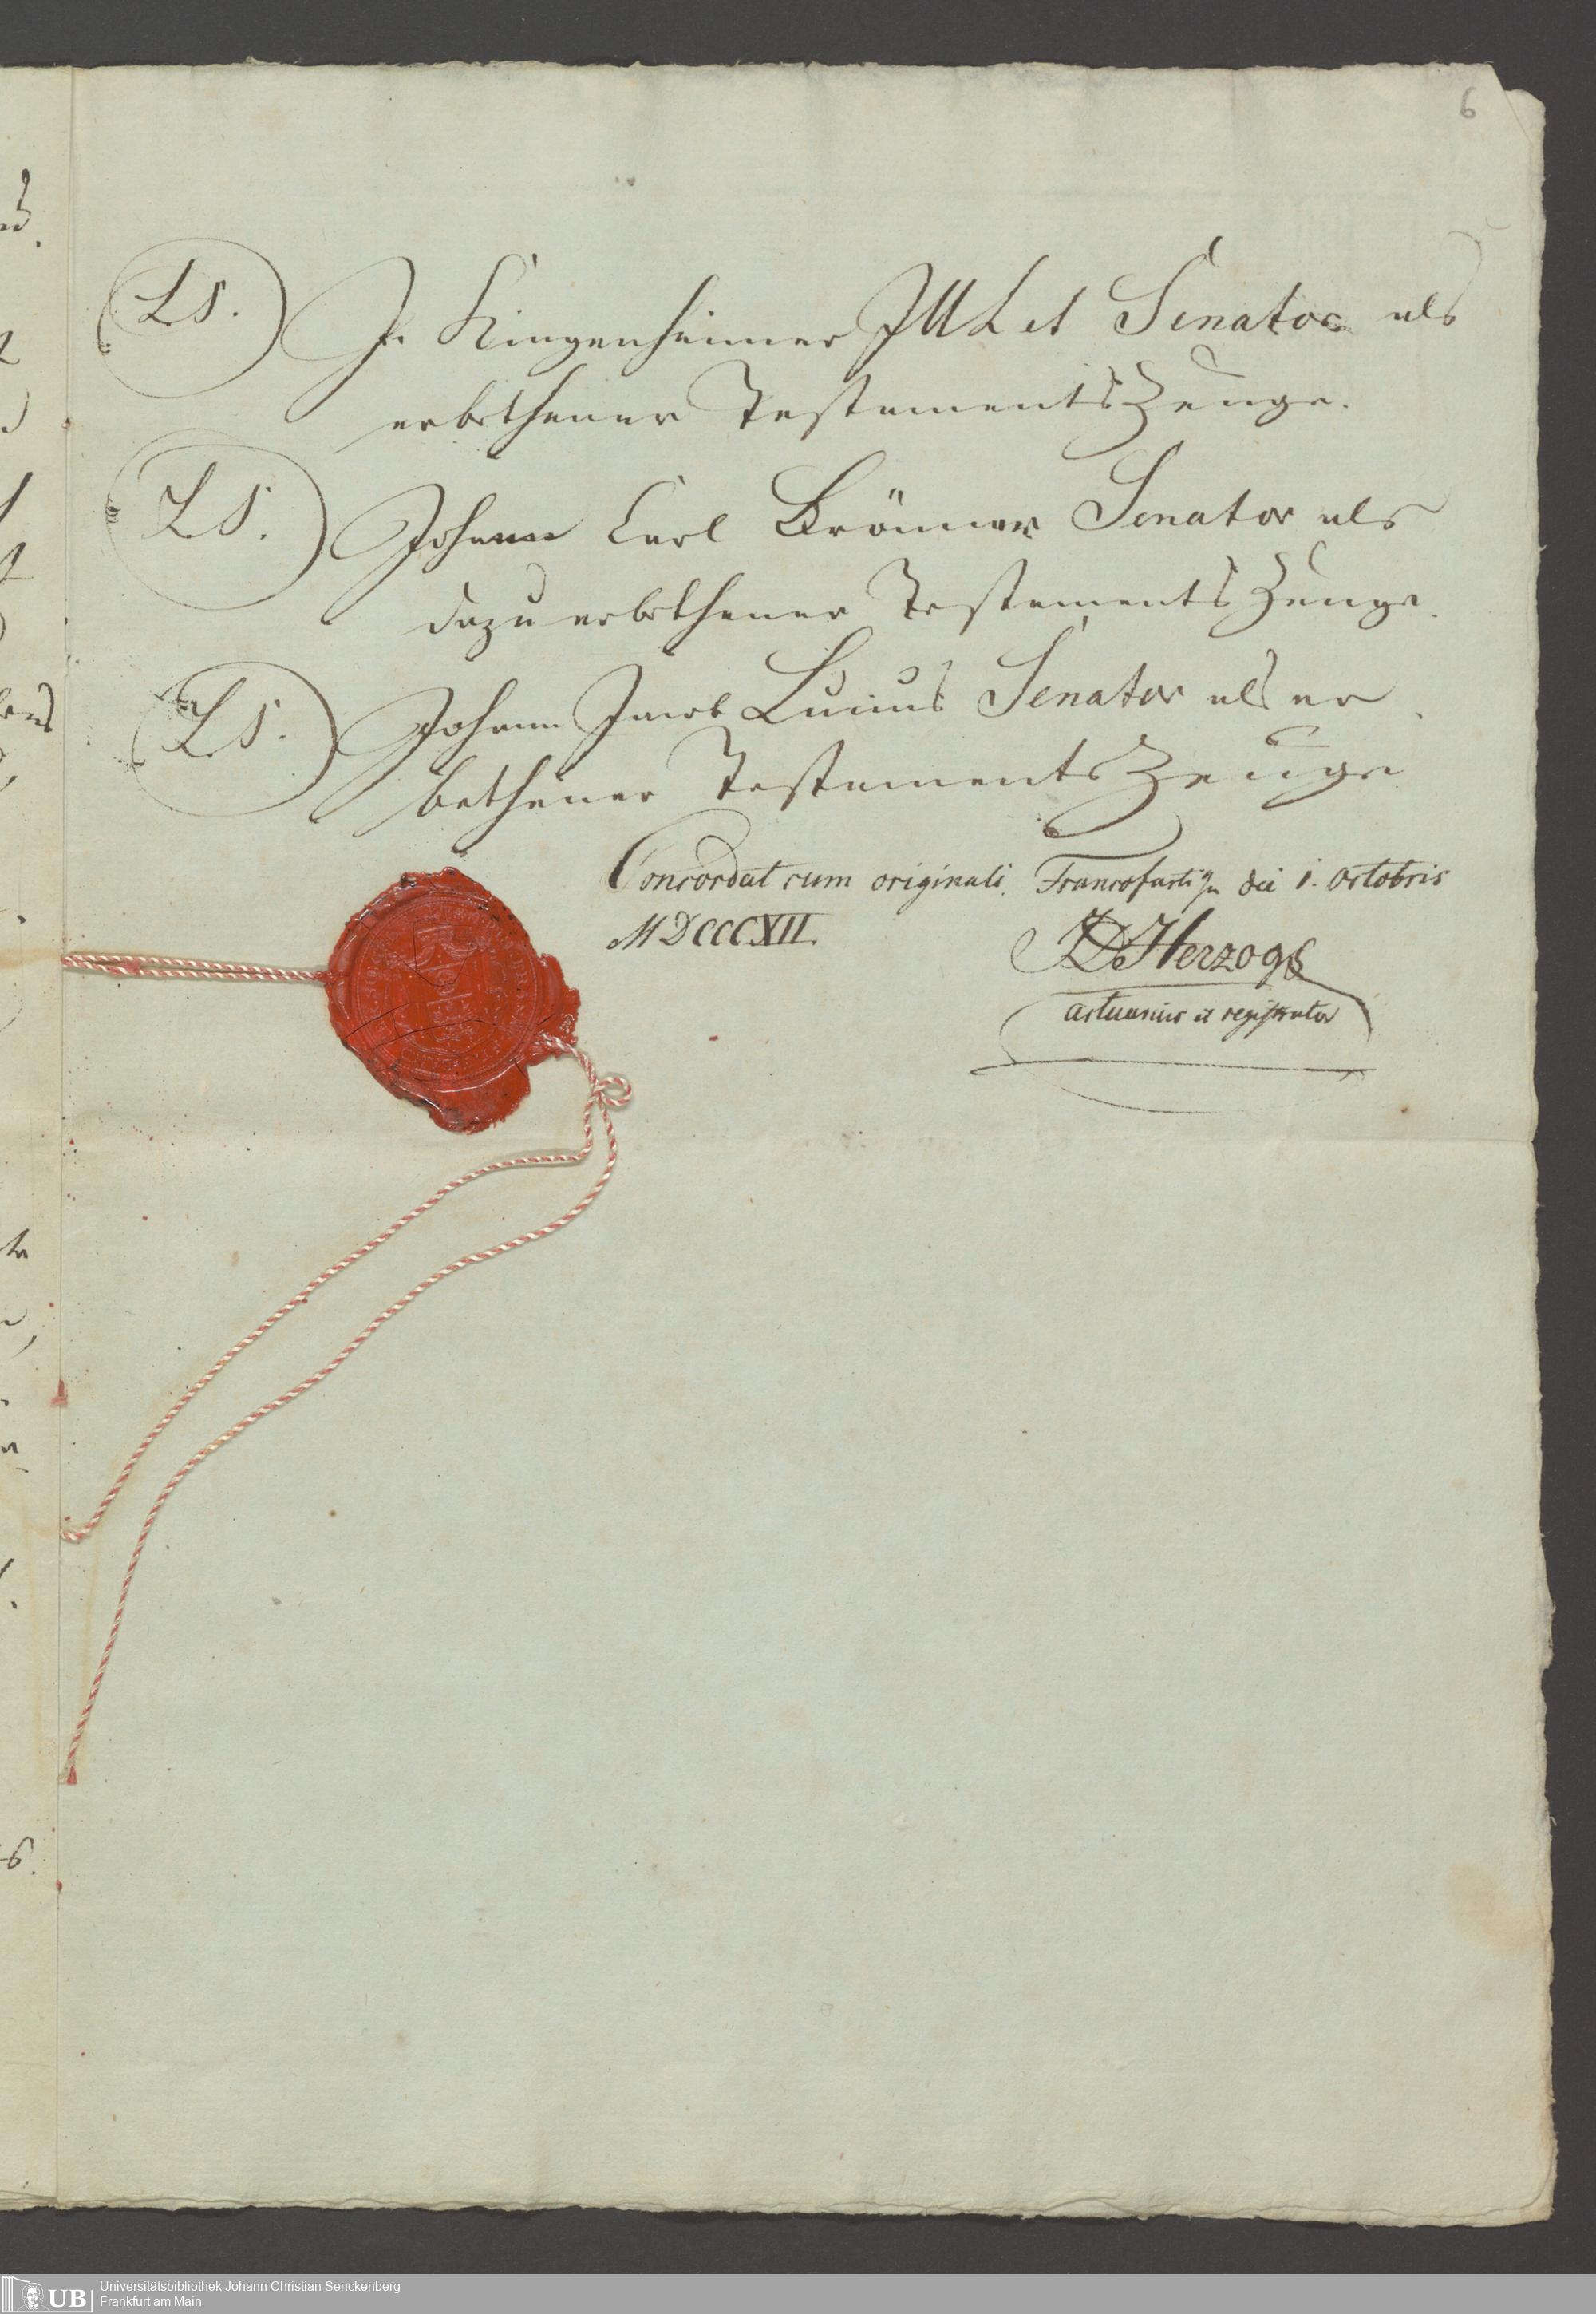 6
LS. J. Kingenheimer JUL et Senator als
erbethener Testaments Zeuge.
LS. Johann Carl Brönner Senator als
dazu erbethener Testaments Zeuge.
LS. Johann Jacob Lucius Senator als er
bethener Testaments Zeuge
Concordat cum originali. Francofurti die 1. Octobris
MDCCCXII.
Herzog
actuarius et registrator
UB
Universitätsbibliothek Johann Christian Senckenberg
Frankfurt am Main